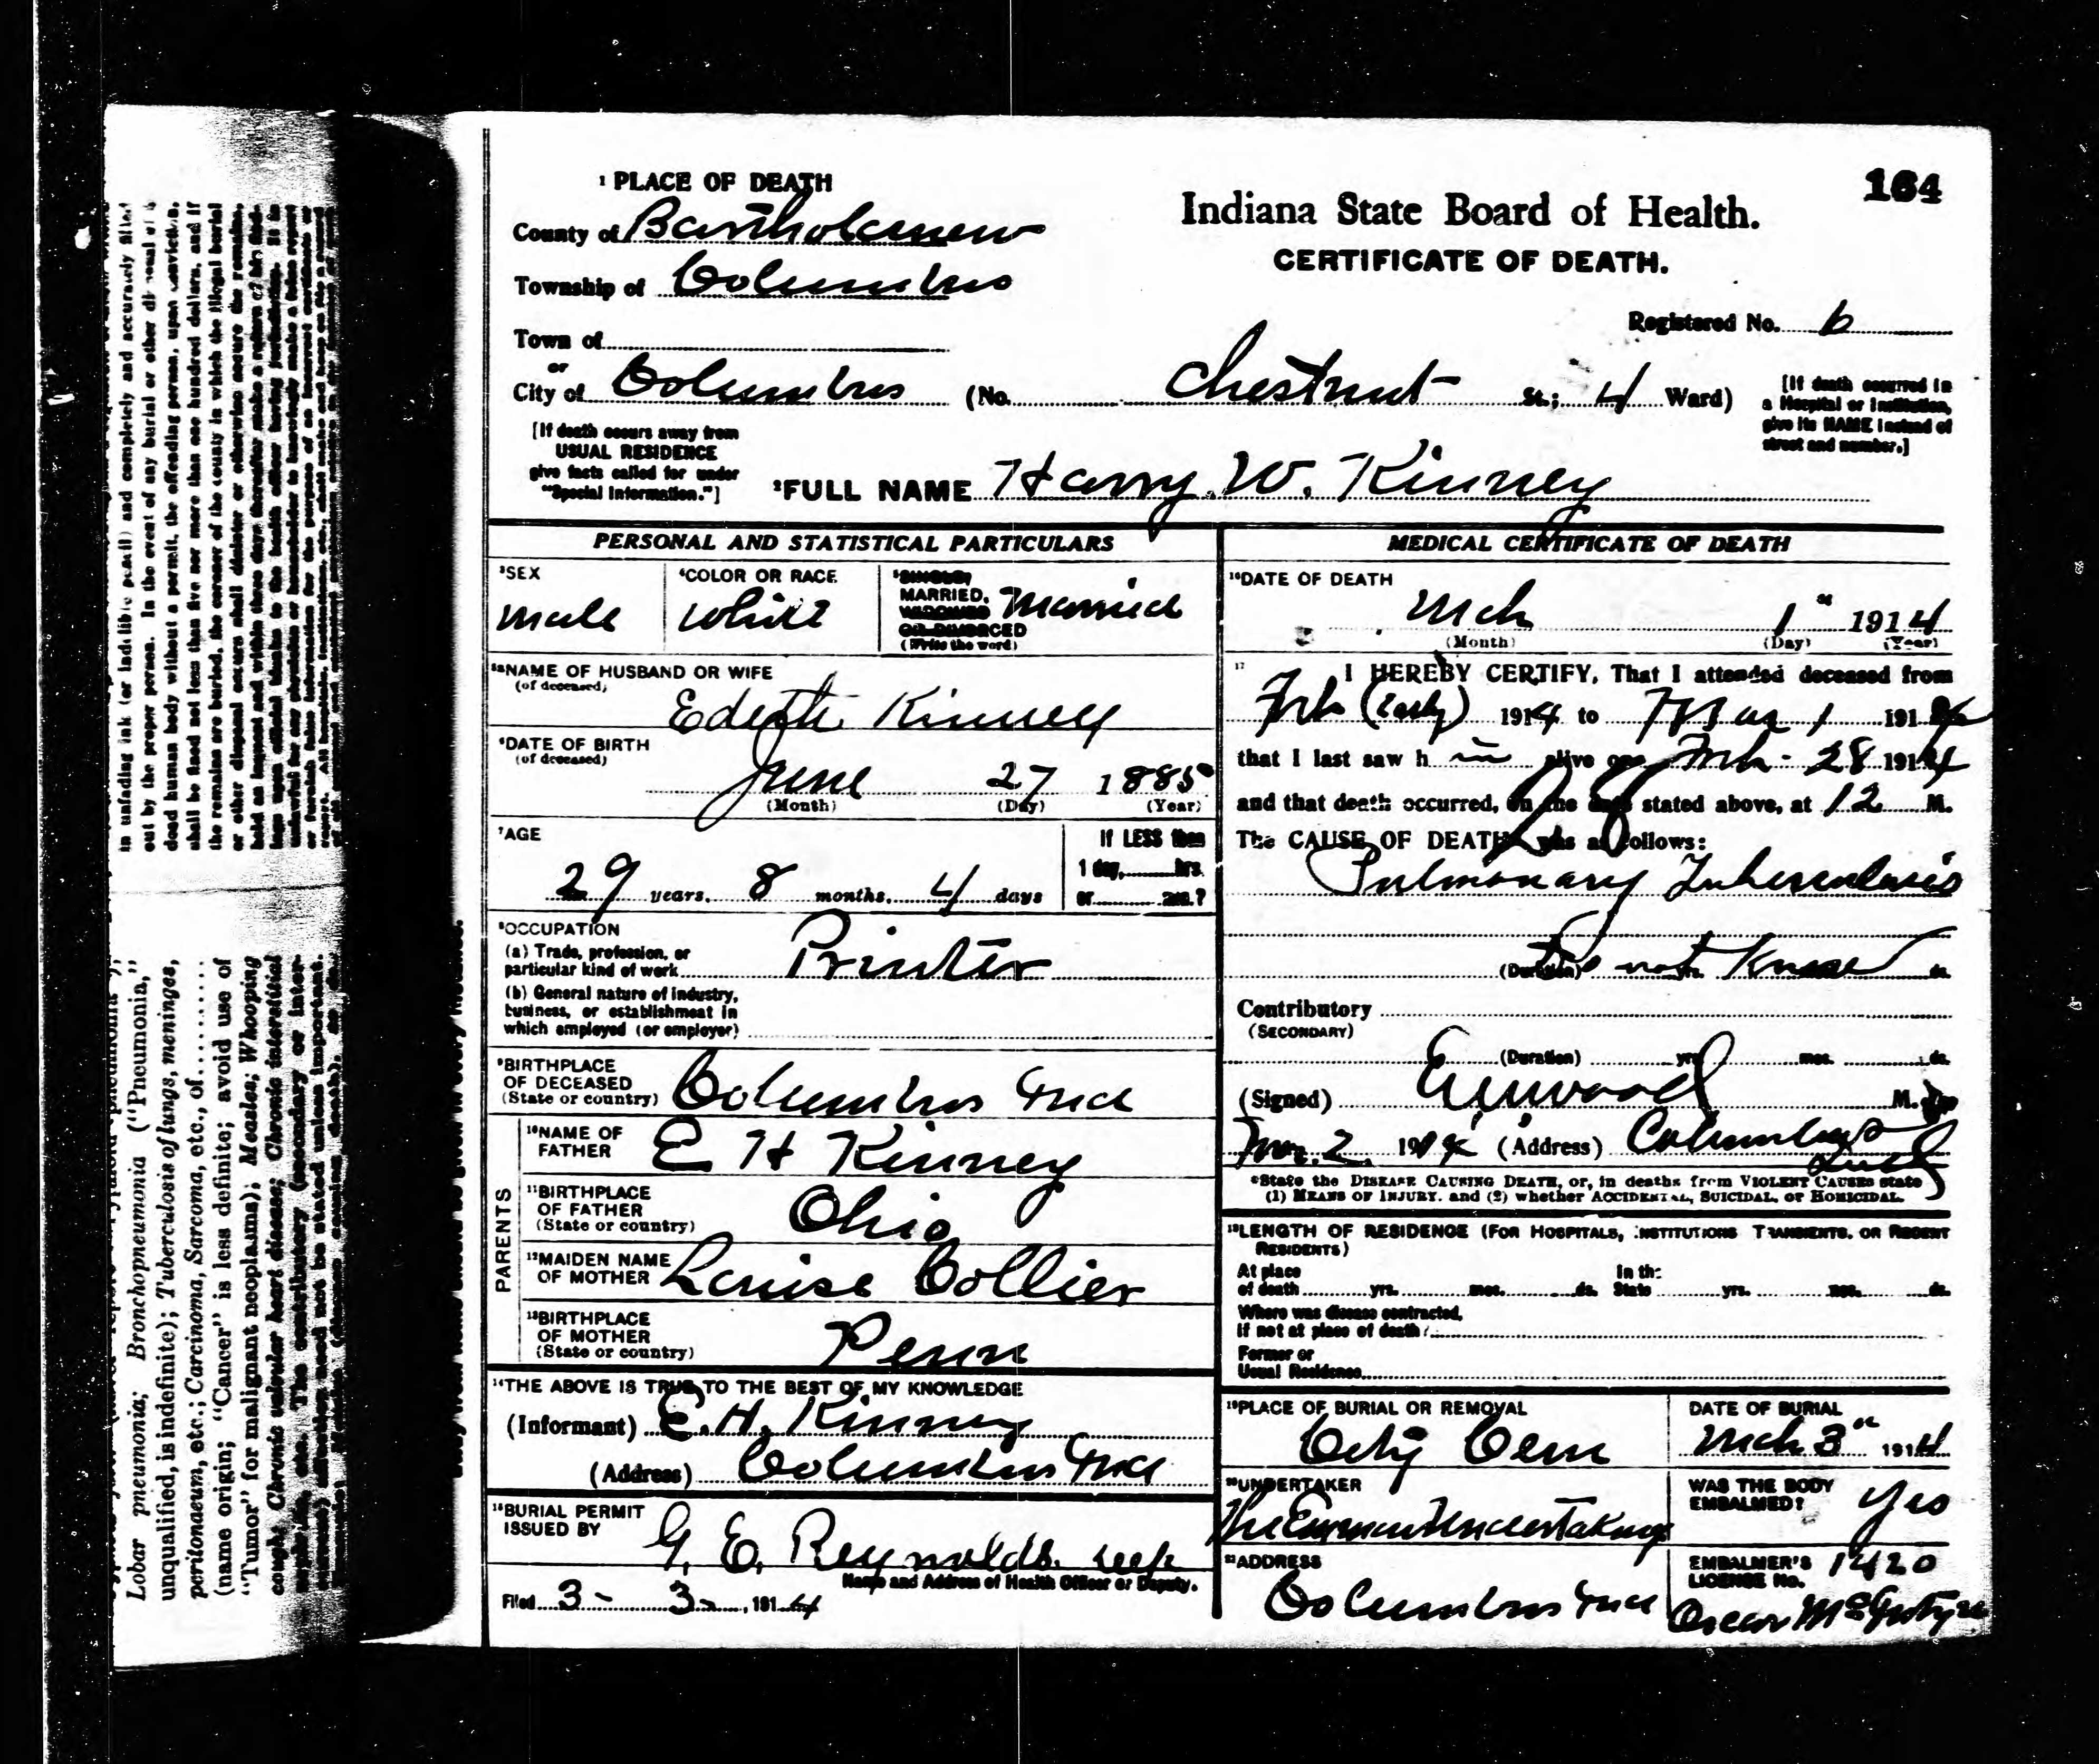 164
1 PLACE OF DEATH
Indiana State Board of Health.
CERTIFICATE OF DEATH.
County of Bartholomew
Township of Columbus
Registered No. 6
Town of
or
City of Columbus (No. Chestnut St.; 4 Ward)
[If death occurred in
a Hospital or Institution,
give its NAME instead of
street and number.]
[If death occurs away from
USUAL RESIDENCE
give facts called for under
"Special Information."]
2 FULL NAME Harry W. Kinney
PERSONAL AND STATISTICAL PARTICULARS
3 SEX
Male
4 COLOR OR RACE
White
5 SINGLE,
MARRIED,
WIDOWED
OR DIVORCED
(Write the word)
Married
5a NAME OF HUSBAND OR WIFE
(of deceased)
Edith Kinney
6 DATE OF BIRTH
(of deceased)
June 27 1885
(Month) (Day) (Year)
7 AGE
29 years. 8 months. 4 days
If LESS than
1 day, hrs.
or min.?
8 OCCUPATION
(a) Trade, profession, or
particular kind of work Printer
(b) General nature of industry,
business, or establishment in
which employed (or employer)
9 BIRTHPLACE
OF DECEASED
(State or country) Columbus Ind
PARENTS
10 NAME OF
FATHER E H Kinney
11 BIRTHPLACE
OF FATHER
(State or country) Ohio
12 MAIDEN NAME
OF MOTHER Louise Collier
13 BIRTHPLACE
OF MOTHER
(State or country) Penn
14 THE ABOVE IS TRUE TO THE BEST OF MY KNOWLEDGE
(Informant) E. H. Kinney
(Address) Columbus Ind
15 BURIAL PERMIT
ISSUED BY G. E. Reynolds
Name and Address of Health Officer or Deputy.
Filed 3- 3-, 1914
MEDICAL CERTIFICATE OF DEATH
16 DATE OF DEATH
Mch 1st 1914
(Month) (Day) (Year)
17 I HEREBY CERTIFY, That I attended deceased from
Feb (Early) 1914 to Mar 1 1914
that I last saw h im alive on Feb - 28 1914
and that death occurred, on the day stated above, at 12 M.
The CAUSE OF DEATH was as follows:
Pulmonary Tuberculosis
(Duration) Do not Know ds.
Contributory
(SECONDARY)
(Duration) yrs. mos. ds.
(Signed) M. D.
Mar. 2. 1914 (Address) Columbus
Ind
*State the DISEASE CAUSING DEATH, or, in deaths from VIOLENT CAUSES state
(1) MEANS OF INJURY, and (2) whether ACCIDENTAL, SUICIDAL, or HOMICIDAL.
18 LENGTH OF RESIDENCE (FOR HOSPITALS, INSTITUTIONS TRANSIENTS, OR RECENT
RESIDENTS)
At place
of death yrs. mos. ds.
In the
State yrs. mos. ds.
Where was disease contracted,
If not at place of death?
Former or
Usual Residence
19 PLACE OF BURIAL OR REMOVAL
City Cem
DATE OF BURIAL
Mch 3rd 1914
20 UNDERTAKER
The Undertaking
WAS THE BODY
EMBALMED? Yes
21 ADDRESS
Columbus Ind
EMBALMER'S
LICENSE No. 1420
Oscar
in unfading ink (or indelible pencil) and completely and accurately filled
out by the proper person. In the event of any burial or other disposal of a
dead human body without a permit, the offending person, upon conviction,
shall be fined not less than five nor more than one hundred dollars, and if
the remains are buried, the coroner of the county in which the illegal burial
or other disposal occurs shall disinter or otherwise secure the remains,
Lobar pneumonia; Bronchopneumonia ("Pneumonia,"
unqualified, is indefinite); Tuberculosis of lungs, meninges,
peritonaeum, etc.; Carcinoma, Sarcoma, etc., of..........
(name origin; "Cancer" is less definite; avoid use of
"Tumor" for malignant neoplasms); Measles; Whooping
cough; Chronic valvular heart disease; Chronic interstitial